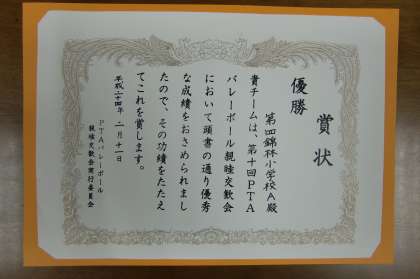 賞状
優勝
第四錦林小学校A殿
貴チームは、第十回PTA
バレーボール親睦交歓会
において頭書の通り優秀
な成績をおさめられまし
たので、その功績をたたえ
てこれを賞します。
平成二十四年 二月十一日
PTAバレーボール
親睦交歓会実行委員会